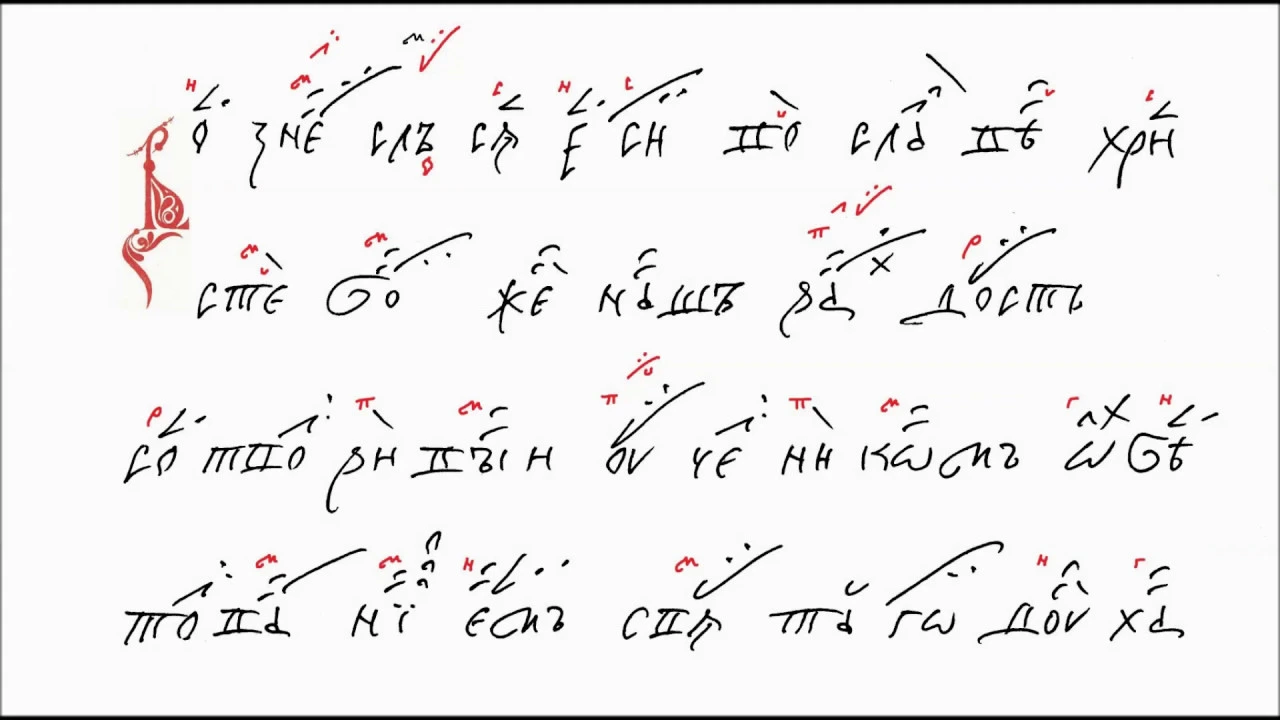 Во зне слъ сѧ е си во сла вѣ хри
сте бо же нашъ ра дость
со тво ри вый оу че ни кѡмъ ѡ бѣ
то ва нї емъ свѧ та гѡ доу ха